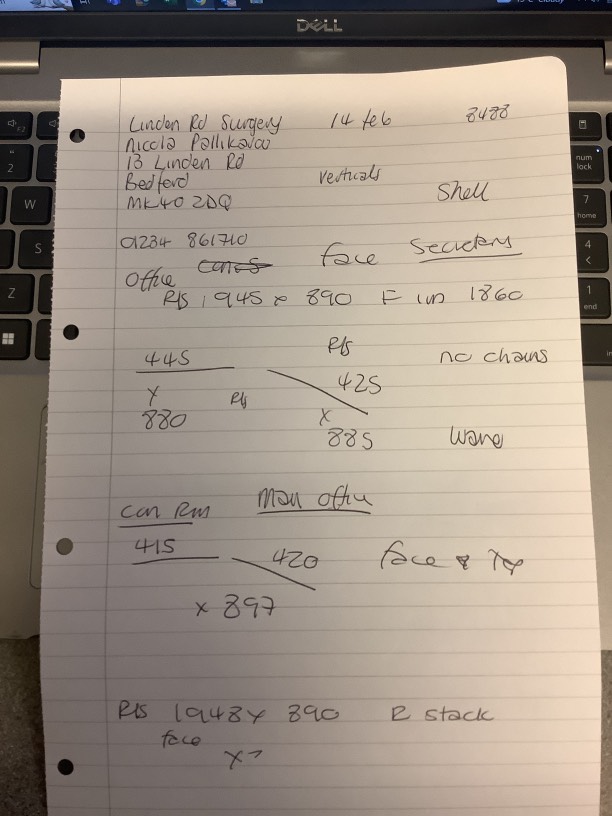 DELL
Linden Rd Surgery 14 feb 8488
Nicola
13 Linden Rd
Bedford verticals Shell
MK40 2DQ
01234 861710
Office face Secretary
R/S 1945 x 890 F in 1860
445 R/S no chains
x R/S 425
880 x
885 Wand
Con Rm Man office
415 420 face
x 897
R/S 1948 x 890 R stack
face
x 2